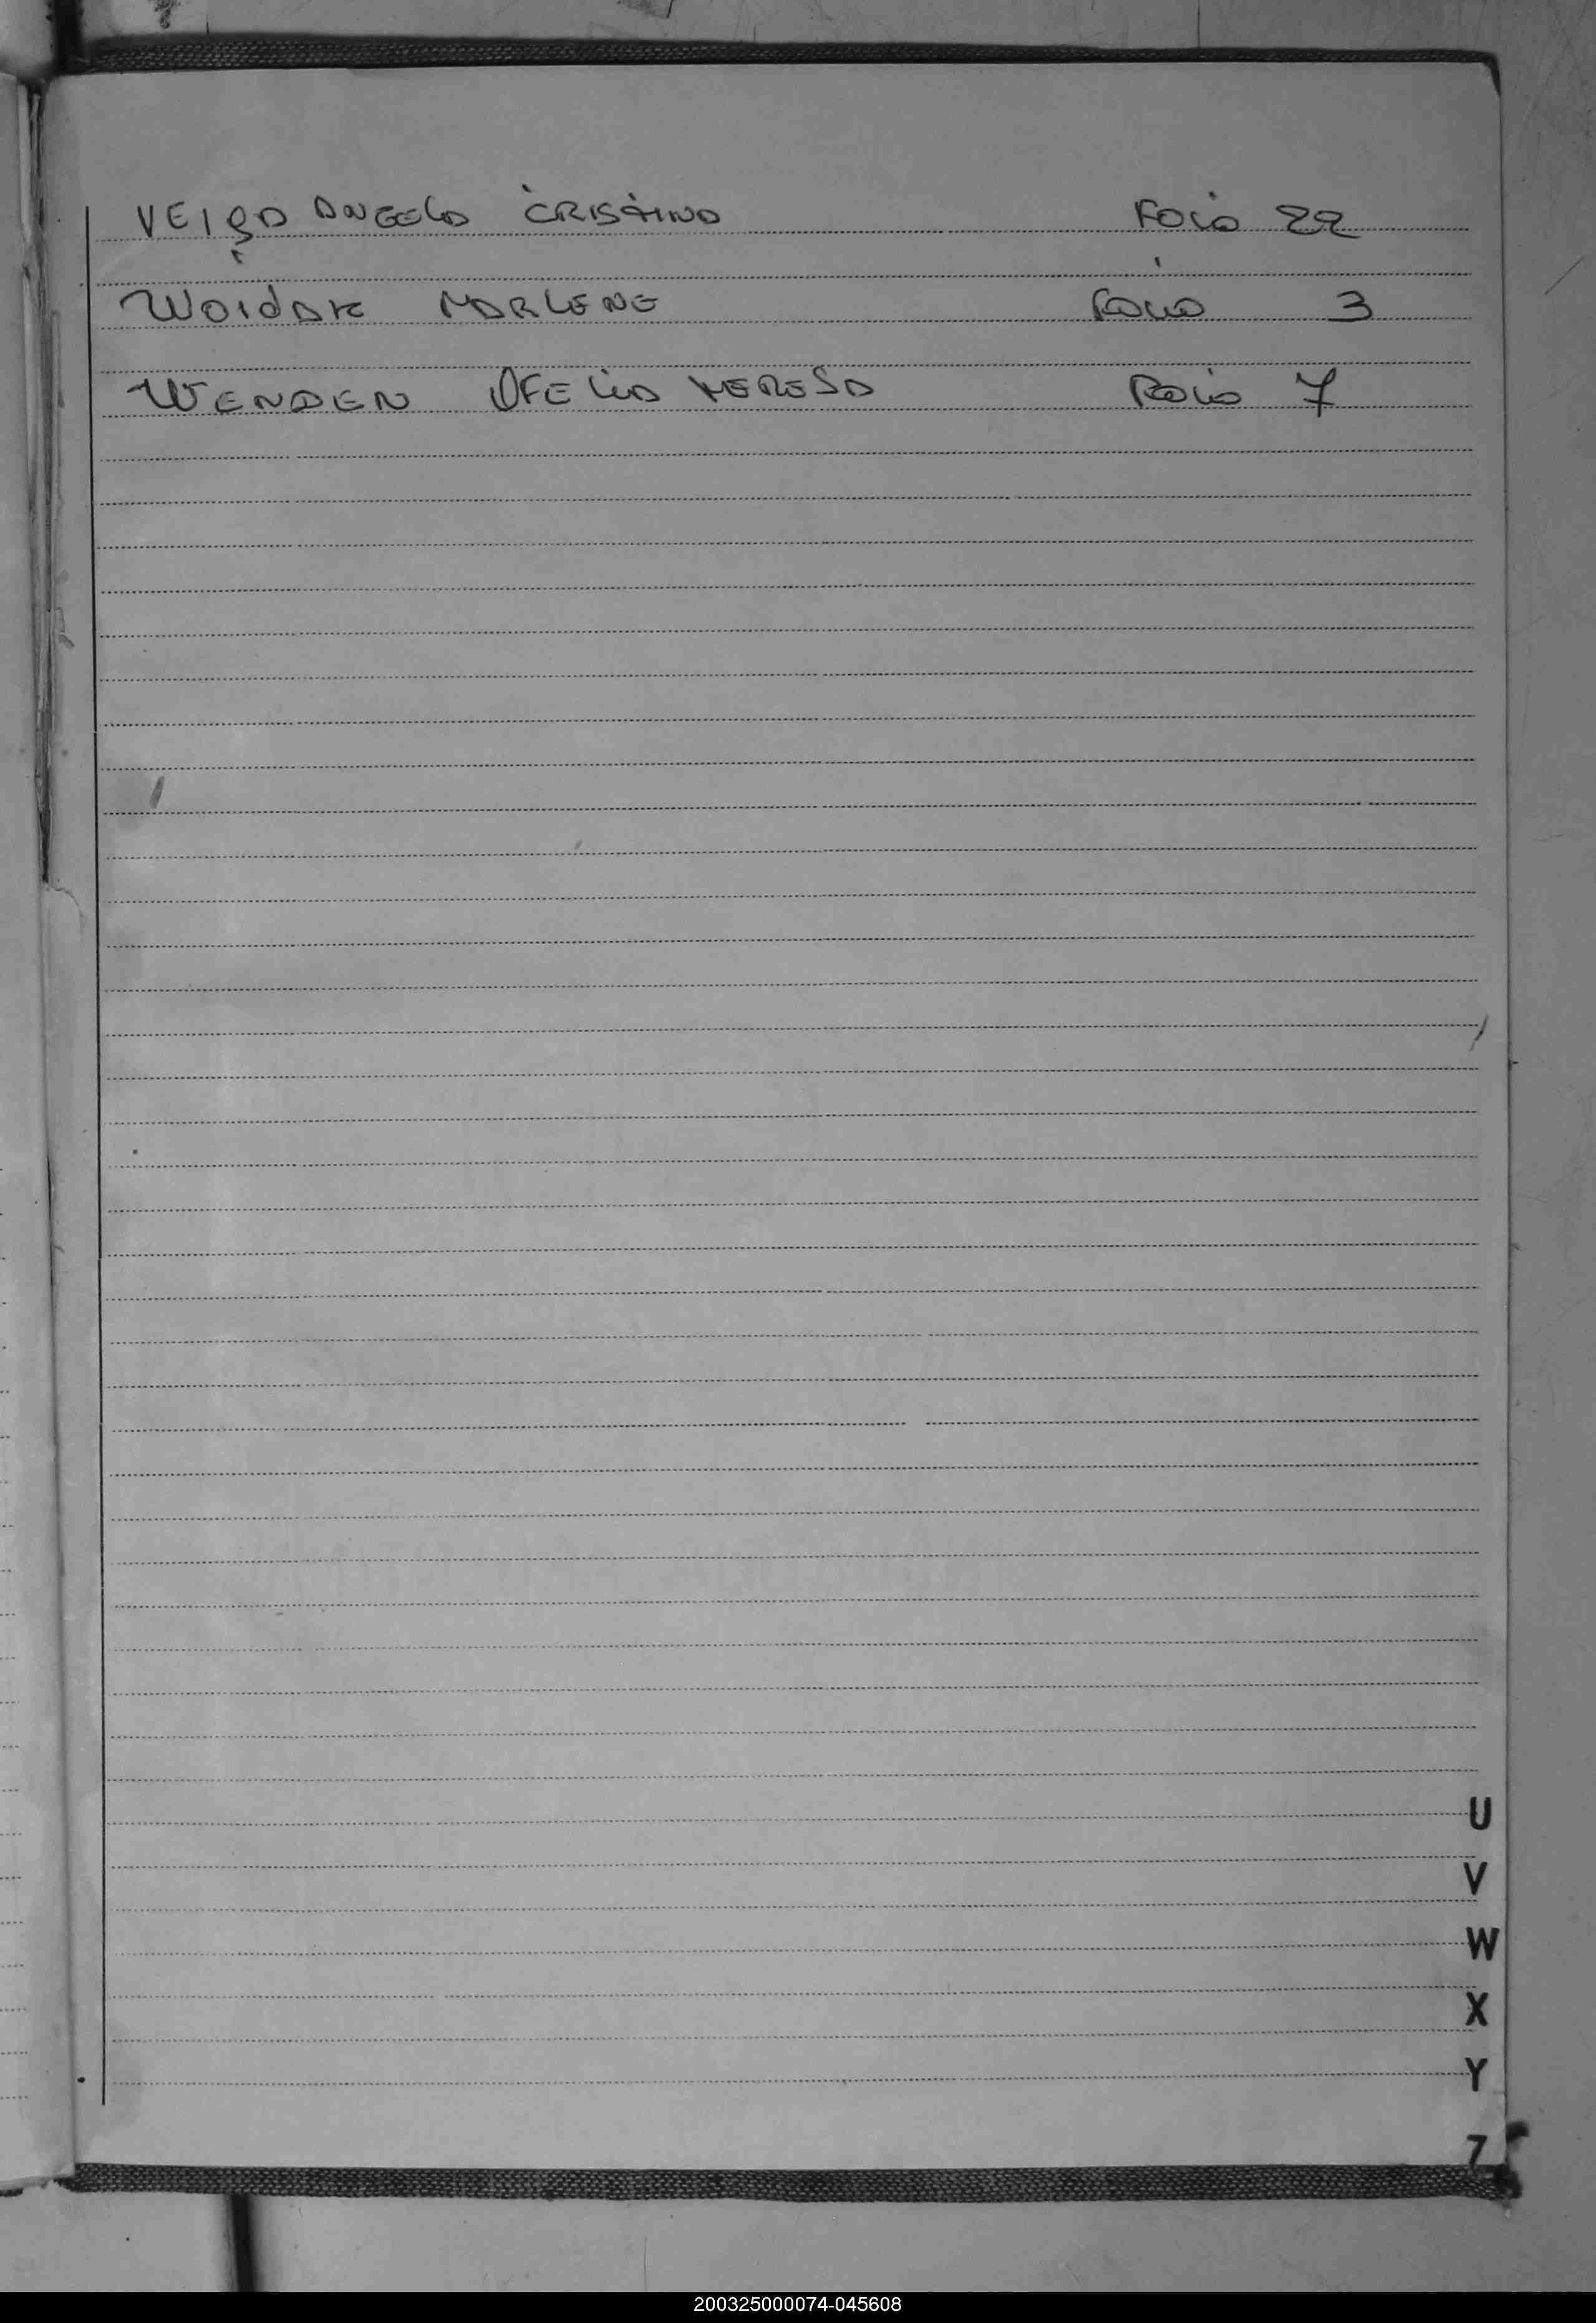 VEIGA ANGELA CRISTINA FOLIO 22
WOIDAK MARLENE FOLIO 3
WENDEN OFELIA TERESA FOLIO 7
U
V
W
X
Y
Z
200325000074-045608